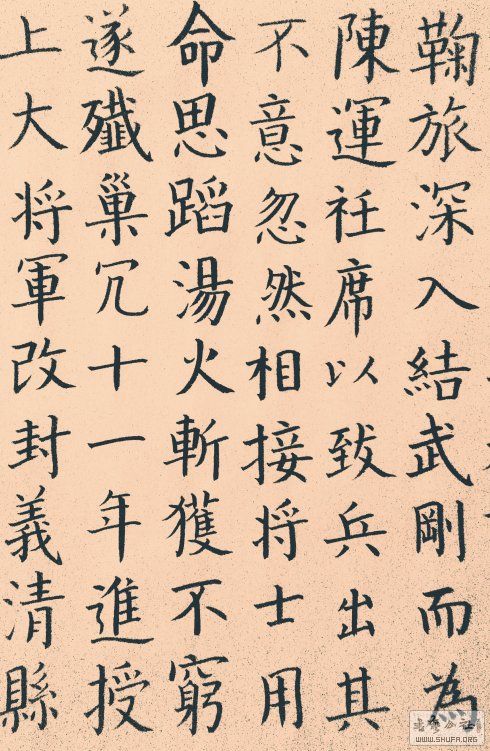 鞠旅深入結武剛而為
陳運衽席以致兵出其
不意忽然相接將士用
命思蹈湯火斬獲不窮
遂殲巢穴十一年進授
上大将軍改封義清縣
WWW.SHUFA.ORG